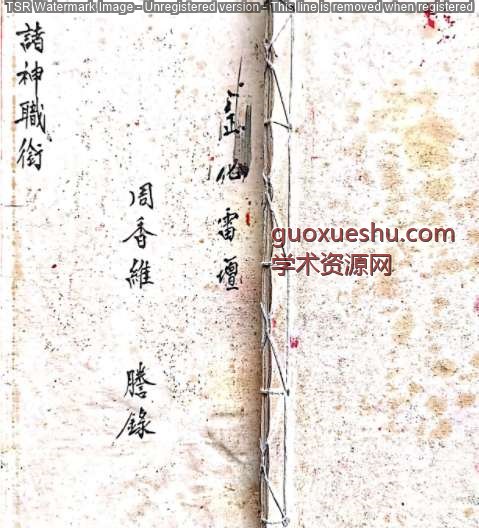 TSR Watermark Image - Unregistered version - This line is removed when registered
化雷壇
周香維 謄錄
諸神職銜
guoxueshu.com
学术资源网